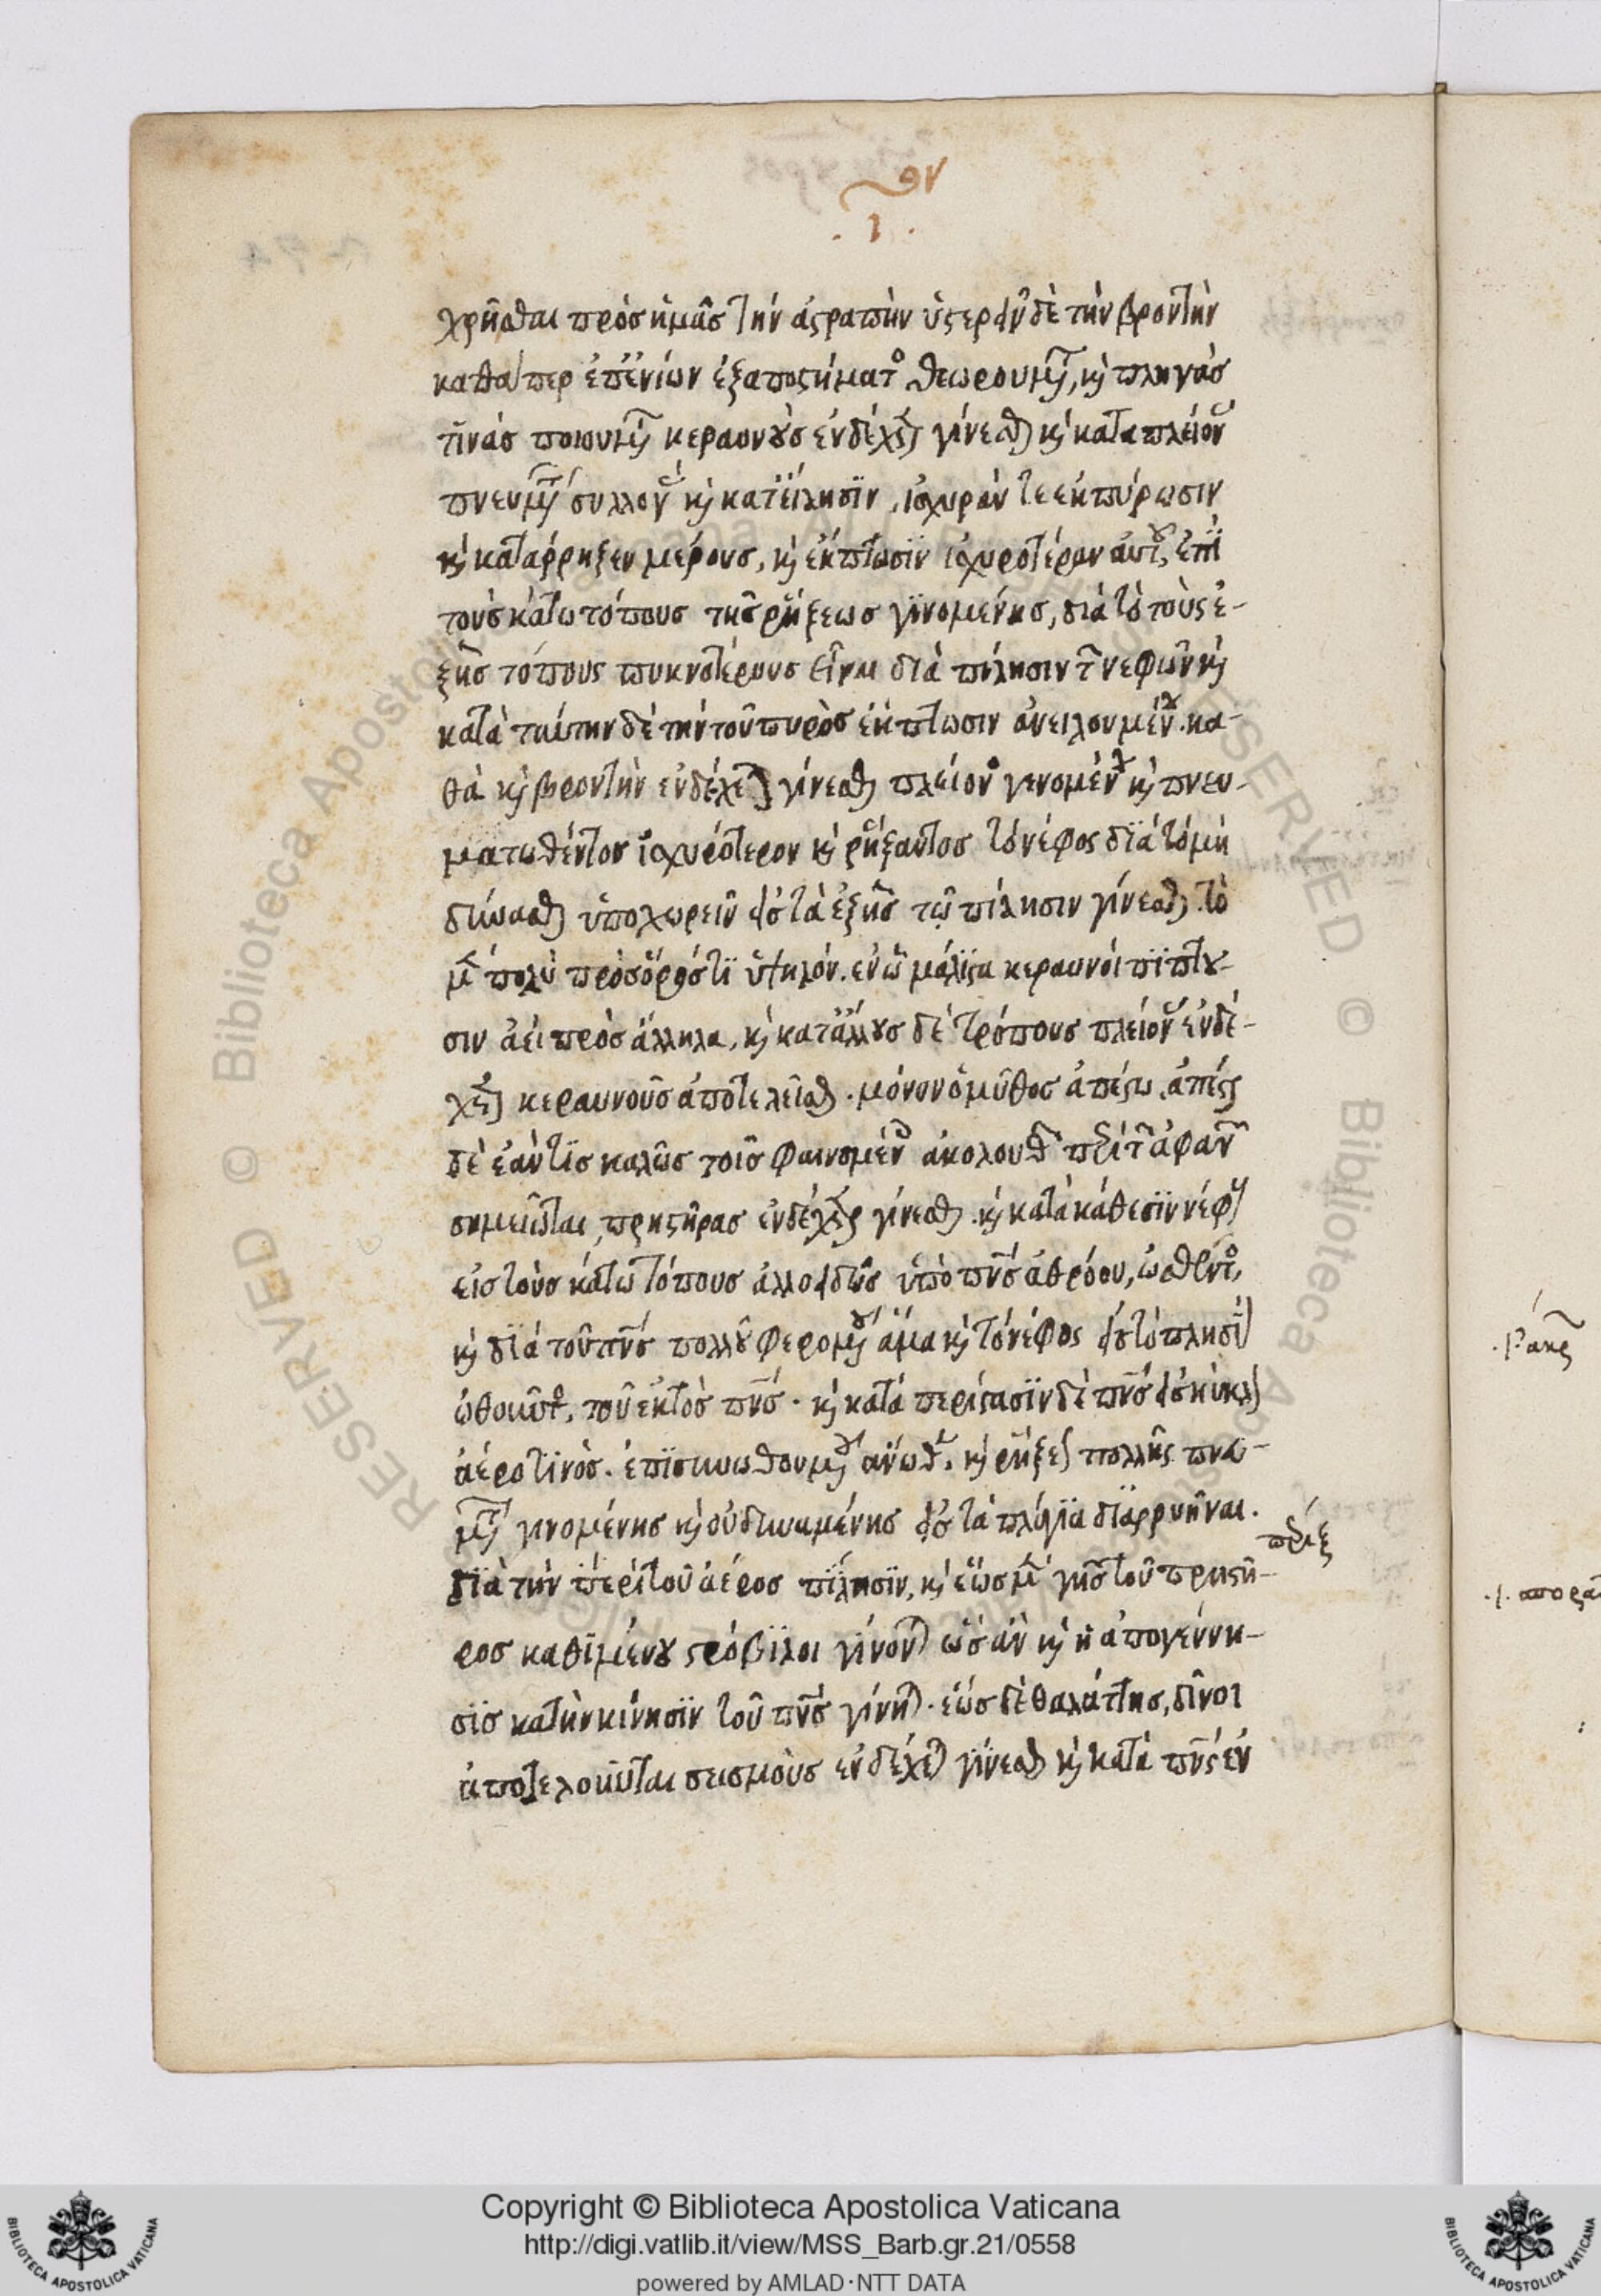 χρῆσθαι πρὸς ἡμᾶς τὴν ἀστραπὴν ὕστερον δὲ τὴν βροντὴν
καθάπερ ἐπ' ἐνίων ἐξ ἀποστήματος θεωρουμένων, καὶ πληγάς
τινὰς ποιουμένων κεραυνοὺς ἐνδέχεται γίνεσθαι καὶ κατὰ πλείονας
πνευμάτων συλλογὰς καὶ κατείλησιν, ἰσχυράν τε ἐκπύρωσιν
καὶ κατάρρηξεν μέρους, καὶ ἔκπτωσιν ἰσχυροτέραν αὐτοῦ, ἐπὶ
τοὺς κάτω τόπους τῆς ῥήξεως γινομένης, διὰ τὸ τοὺς ἑ-
ξῆς τόπους πυκνοτέρους εἶναι διὰ πίλησιν τῶν νεφῶν καὶ
κατὰ ταύτην δὲ τὴν τοῦ πυρὸς ἔκπτωσιν ἀνειλουμένου. κα-
θὰ καὶ βροντὴν ἐνδέχεται γίνεσθαι πλείονος γενομένου καὶ πνευ-
ματωθέντος ἰσχυρότερον καὶ ῥήξαντος τὸ νέφος διὰ τὸ μὴ
δύνασθαι ὑποχωρεῖν εἰς τὰ ἑξῆς τῷ πίλησιν γίνεσθαι. τὸ
μὲν πολὺ πρὸς ὄρος τι ὑψηλόν. ἐν ᾧ μάλιστα κεραυνοὶ πίπτου-
σιν ἀεὶ πρὸς ἄλληλα, καὶ κατ' ἄλλους δὲ τρόπους πλείονας ἐνδέ-
χεται κεραυνοὺς ἀποτελεῖσθαι. μόνον ὁ μῦθος ἀπέστω. ἀπέσται
δὲ ἐάν τις καλῶς τοῖς φαινομένοις ἀκολουθῶν περὶ τῶν ἀφανῶν
σημειῶται, πρηστῆρας ἐνδέχεται γίνεσθαι. καὶ κατὰ κάθεσιν νέφους
εἰς τοὺς κάτω τόπους ἀλλοειδῶς ὑπὸ πνεύματος ἀθρόου, ὠσθέντος,
καὶ διὰ τοῦ πνεύματος πολλοῦ φερομένου ἅμα καὶ τὸ νέφος εἰς τὸ πλησίον
ὠθοῦντος, τοῦ ἐκτὸς πνεύματος. καὶ κατὰ περίστασιν δὲ πνεύματος εἰς κύκλον
ἀέρος τινὸς. ἐπισυνωθουμένου ἄνωθεν. καὶ ῥύσεως πολλῆς πνευ-
μάτων γινομένης καὶ οὐ δυναμένης εἰς τὰ πλάγια διαρρυῆναι.
διὰ τὴν πέριξ τοῦ ἀέρος πίλησιν, καὶ ἕως μὲν γῆς τοῦ πρηστῆ-
ρος καθιμένου στρόβιλοι γίνονται ὡς ἂν καὶ ἡ ἀπογέννη-
σις κατ' τὴν κίνησιν τοῦ πνεύματος γίνηται. ἕως δὲ θαλάττης, δῖνοι
ἀποτελοῦνται σεισμοὺς ἐνδέχεται γίνεσθαι καὶ κατὰ πνεύματος ἐν
πέριξ
Copyright © Biblioteca Apostolica Vaticana
http://digi.vatlib.it/view/MSS_Barb.gr.21/0558
powered by AMLAD·NTT DATA